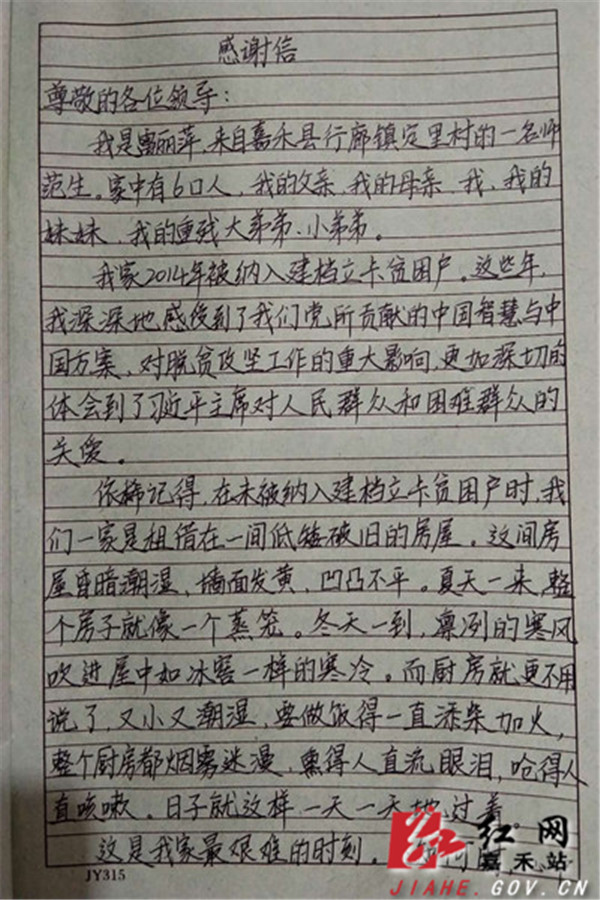 感谢信
尊敬的各位领导：
我是雷丽萍，来自嘉禾县行廊镇定里村的一名师
范生。家中有6口人，我的父亲、我的母亲、我、我的
妹妹、我的重残大弟弟、小弟弟。
我家2014年被纳入建档立卡贫困户。这些年，
我深深地感受到了我们党所贡献的中国智慧与中
国方案，对脱贫攻坚工作的重大影响，更加深切的
体会到了习近平主席对人民群众和困难群众的
关爱。
依稀记得，在未被纳入建档立卡贫困户时，我
们一家是租借在一间低矮破旧的房屋。这间房
屋昏暗潮湿，墙面发黄，凹凸不平。夏天一来，整
个房子就像一个蒸笼。冬天一到，凛冽的寒风
吹进屋中如冰窖一样的寒冷。而厨房就更不用
说了，又小又潮湿，要做饭得一直添柴加火，
整个厨房都烟雾迷漫，熏得人直流眼泪，呛得人
直咳嗽。日子就这样一天一天地过着。
这是我家最艰难的时刻。
JY315
红网
嘉禾站
JIAHE.GOV.CN